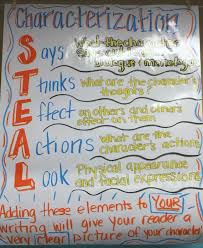 Characterization
Says What the character
Thinks What are the character's
thoughts?
Effect on others and others
effect on them
Actions What are the
character's actions
Look Physical appearance
and facial expressions
Adding these elements to YOUR
writing will give your reader a
very clear picture of your character